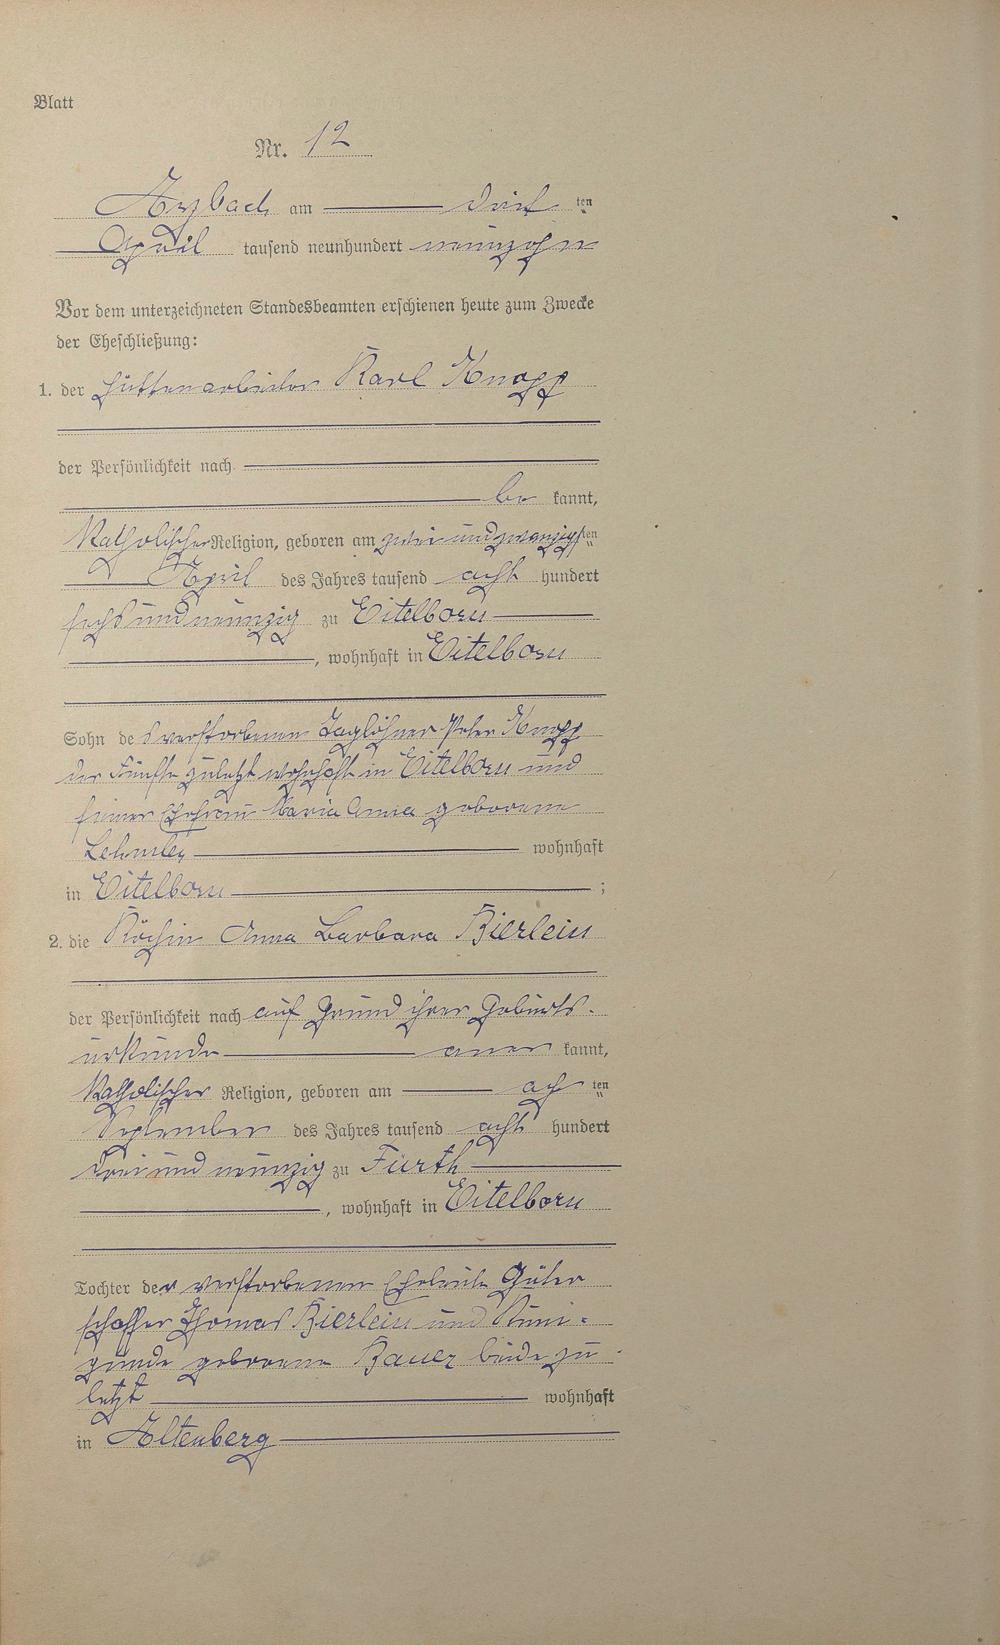 Blatt
Nr. 12
Arzbach am dritten
April tausend neunhundert neunzehn
Vor dem unterzeichneten Standesbeamten erschienen heute zum Zwecke
der Eheschließung:
1. der Hüttenarbeiter Karl Knopp
der Persönlichkeit nach
be kannt,
Katholischer Religion, geboren am zwei und zwanzigsten
April des Jahres tausend acht hundert
sechs und neunzig zu Eitelborn
, wohnhaft in Eitelborn
Sohn des verstorbenen Taglöhner Peter Knopp
der Fünfte zuletzt wohnhaft in Eitelborn und
seiner Ehefrau Maria Anna geborene
wohnhaft
in Eitelborn ;
2. die Köchin Anna Barbara Bierlein
der Persönlichkeit nach auf Grund ihrer Geburts-
urkunde aner kannt,
Katholischer Religion, geboren am ach ten
September des Jahres tausend acht hundert
drei und neunzig zu Fürth
, wohnhaft in Eitelborn
Tochter der verstorbenen Eheleute Güter
schaffer Thomas Bierlein und Kuni-
gunde geborene Bauer beide zu
letzt wohnhaft
in Altenberg